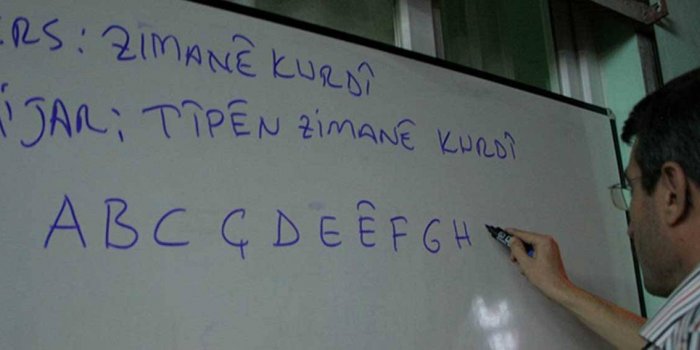 ERS: ZIMANÊ KURDÎ
IJAR; TÎPÊN ZIMANÊ KURDÎ
A B C Ç D E Ê F G H